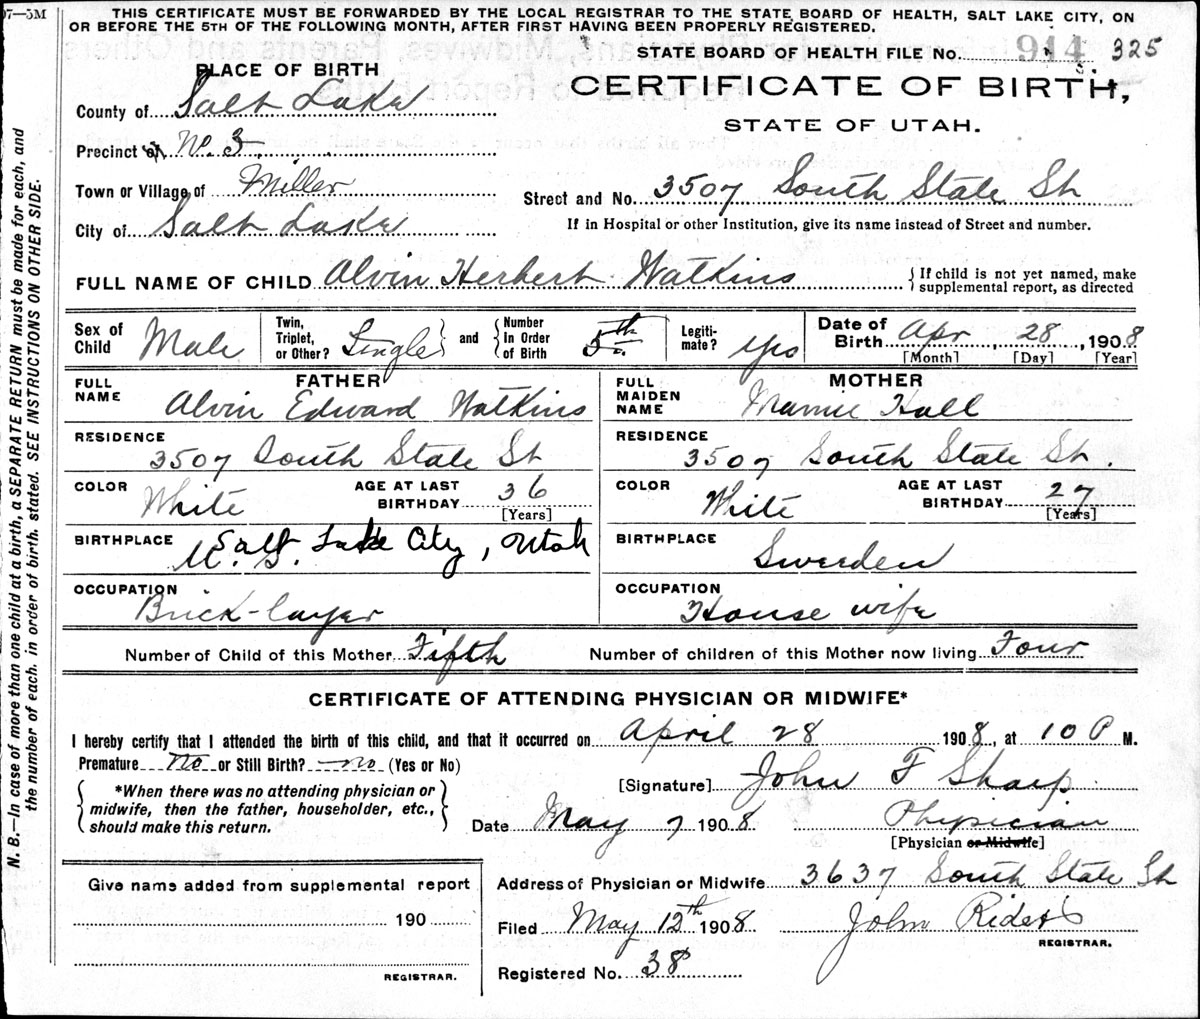 07-5M
THIS CERTIFICATE MUST BE FORWARDED BY THE LOCAL REGISTRAR TO THE STATE BOARD OF HEALTH, SALT LAKE CITY, ON
OR BEFORE THE 5TH OF THE FOLLOWING MONTH, AFTER FIRST HAVING BEEN PROPERLY REGISTERED.
STATE BOARD OF HEALTH FILE No. 914 325
PLACE OF BIRTH
CERTIFICATE OF BIRTH,
STATE OF UTAH.
County of Salt Lake
Precinct of No. 3
Town or Village of Miller
Street and No. 3507 South State St
City of Salt Lake
If in Hospital or other Institution, give its name instead of Street and number.
FULL NAME OF CHILD Alvin Herbert Watkins
If child is not yet named, make supplemental report, as directed
Sex of Child Male
Twin, Triplet, or Other? Single and Number In Order of Birth 5th
Legitimate? Yes
Date of Birth Apr 28, 1908
[Month] [Day] [Year]
FATHER
FULL NAME Alvin Edward Watkins
RESIDENCE 3507 South State St
COLOR White AGE AT LAST BIRTHDAY 36 [Years]
BIRTHPLACE Salt Lake City, Utah
U. S.
OCCUPATION Brick-layer
MOTHER
FULL MAIDEN NAME Mamie Hall
RESIDENCE 3507 South State St.
COLOR White AGE AT LAST BIRTHDAY 27 [Years]
BIRTHPLACE Sweden
OCCUPATION House wife
Number of Child of this Mother Fifth Number of children of this Mother now living Four
CERTIFICATE OF ATTENDING PHYSICIAN OR MIDWIFE*
I hereby certify that I attended the birth of this child, and that it occurred on April 28 1908, at 10 P M.
Premature No or Still Birth? no (Yes or No)
[Signature] John F Sharp
*When there was no attending physician or
midwife, then the father, householder, etc.,
should make this return.
Date May 7 1908 Physician
[Physician or Midwife]
Give name added from supplemental report
190
REGISTRAR.
Address of Physician or Midwife 3637 South State St
Filed May 12th 1908 John Rides
REGISTRAR.
Registered No. 38
N. B.—In case of more than one child at a birth, a SEPARATE RETURN must be made for each, and
the number of each, in order of birth, stated. SEE INSTRUCTIONS ON OTHER SIDE.